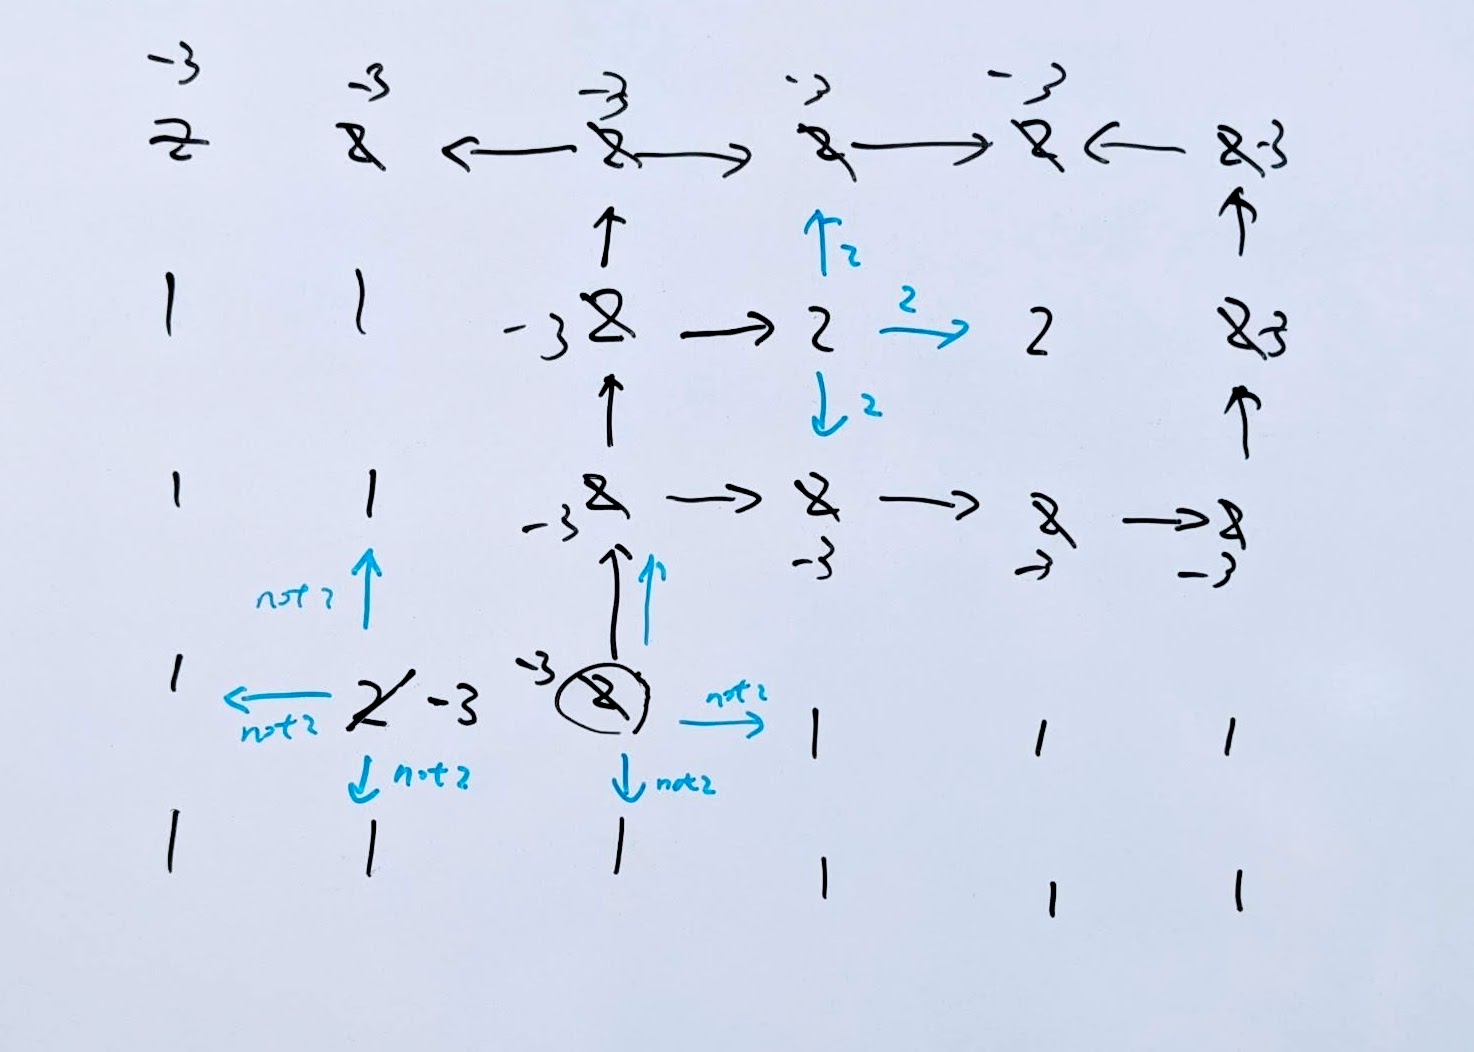 -3 -3 -3 -3 -3
2 2 ← 2 → 2 → 2 ← 2 -3
↑ ↑ 2 ↑
1 1 -3 2 → 2 → 2 2 2 -3
↑ ↓ 2 ↑
1 1 -3 2 → 2 → 2 → 2
-3 -3 -3
not 2 ↑ ↑ ↑
1 ← not 2 2 -3 -3 2 → not 2 1 1 1
↓ not 2 ↓ not 2
1 1 1 1 1 1